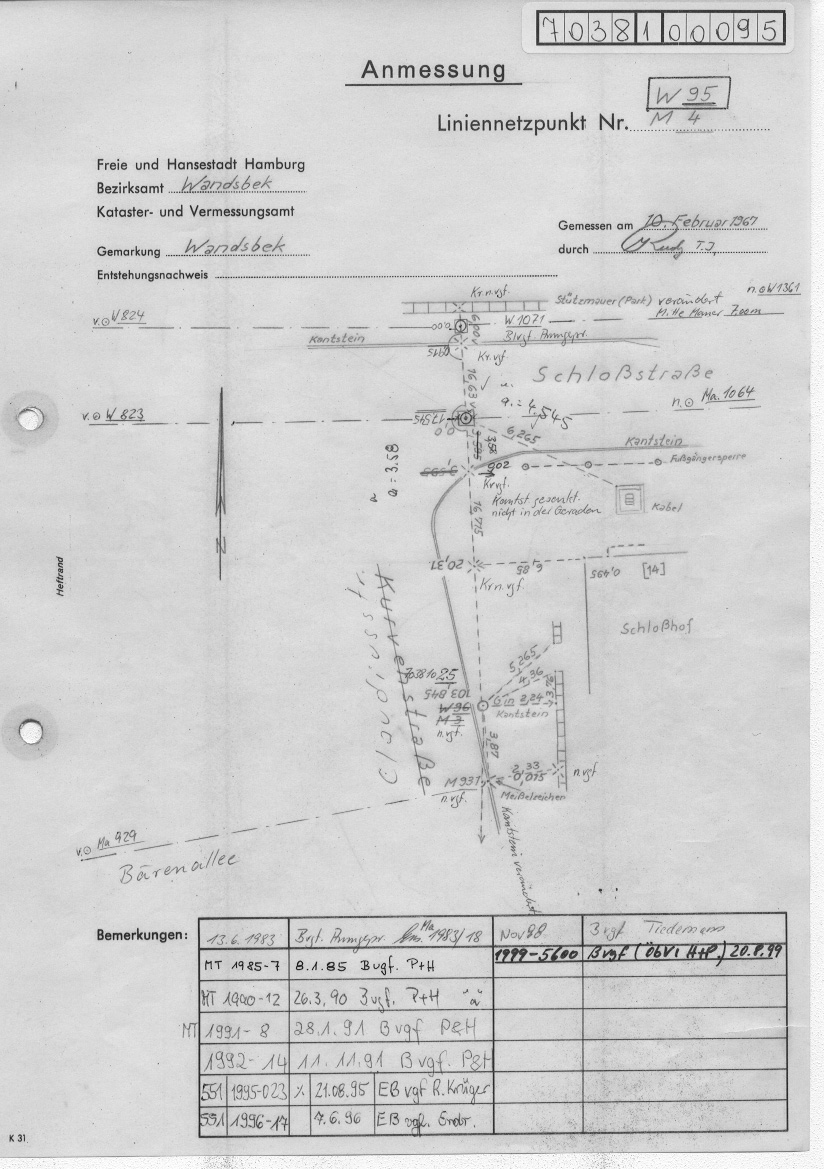 7038100095
Anmessung
W 95
Liniennetzpunkt Nr. M 4
Freie und Hansestadt Hamburg
Bezirksamt Wandsbek
Kataster- und Vermessungsamt
Gemessen am 10. Februar 1967
Gemarkung Wandsbek
durch T.J.
Entstehungsnachweis
Kr.n.vgf.
Stützmauer (Park) verändert
n.⊙W1361
v.⊙ W 824
0,00
W 1071
Mitte Mauer 7.00m
Kantstein
Kr.vgf.
Schloßstraße
16,63
v.⊙ W 823
n.⊙ Ma. 1064
a. = 4,545
17,545
0,0
6,265
Kantstein
a = 3.58
3,595
902
Fußgängersperre
Kr.vgf.
Kantst. gesenkt.
nicht in der Geraden
Kabel
16,775
N
Heftrand
20,37
6,85
0,495
[14]
Kr.n.vgf.
Schloßhof
Claudiusstr.
Kurvenstraße
5,265
4,96
703810 25
103,845
2,24
3,76
W 96
M 3
Kantstein
n.vgf.
3,87
2,33
0,015
n.vgf.
M 931
n.vgf.
Meißelzeichen
Kantstein verändert
v.⊙ Ma 929
Bärenallee
Bemerkungen:
13.6.1983 Bvgf. Ma 1983/18 Nov 88 Bvgf Tiedemann
MT 1985-7 8.1.85 Bvgf. P+H 1999-5600 Bvgf (ÖbVI H+P.) 20.8.99
MT 1990-12 26.3.90 Bvgf. P+H "a"
MT 1991-8 28.1.91 Bvgf P&H
1992-14 11.11.91 Bvgf. P&H
551 1995-023 % 21.08.95 EB vgf R. Krüger
551 1996-17 7.6.96 EB vgf.
K 31